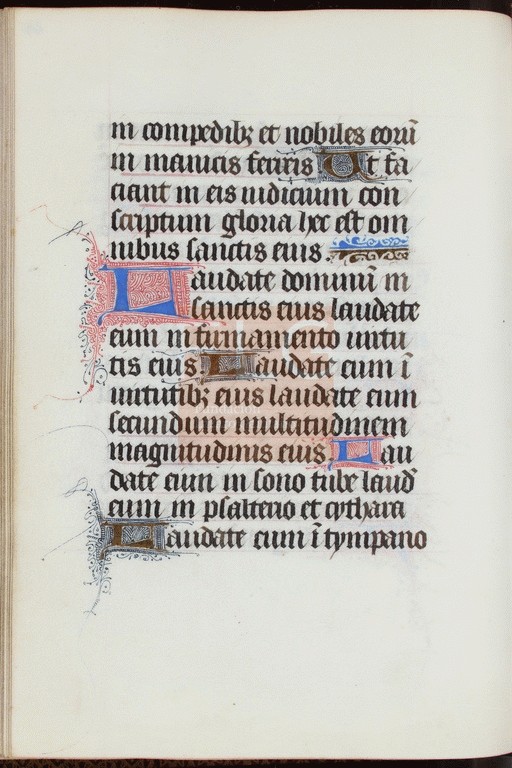 in compedibꝫ et nobiles eorū
in manicis ferreis Ut fa
ciant in eis iudicium con
scriptum gloria hec est om
nibus sanctis eius .
Laudate dominū in
sanctis eius laudate
eum in firmamento uirtu
tis eius Laudate eum ī
uirtutibꝫ eius laudate eum
secundum multitudinem
magnitudinis eius . Lau
date eum in sono tube laud̄
eum in psalterio et cythara
Laudate eum ī tympano